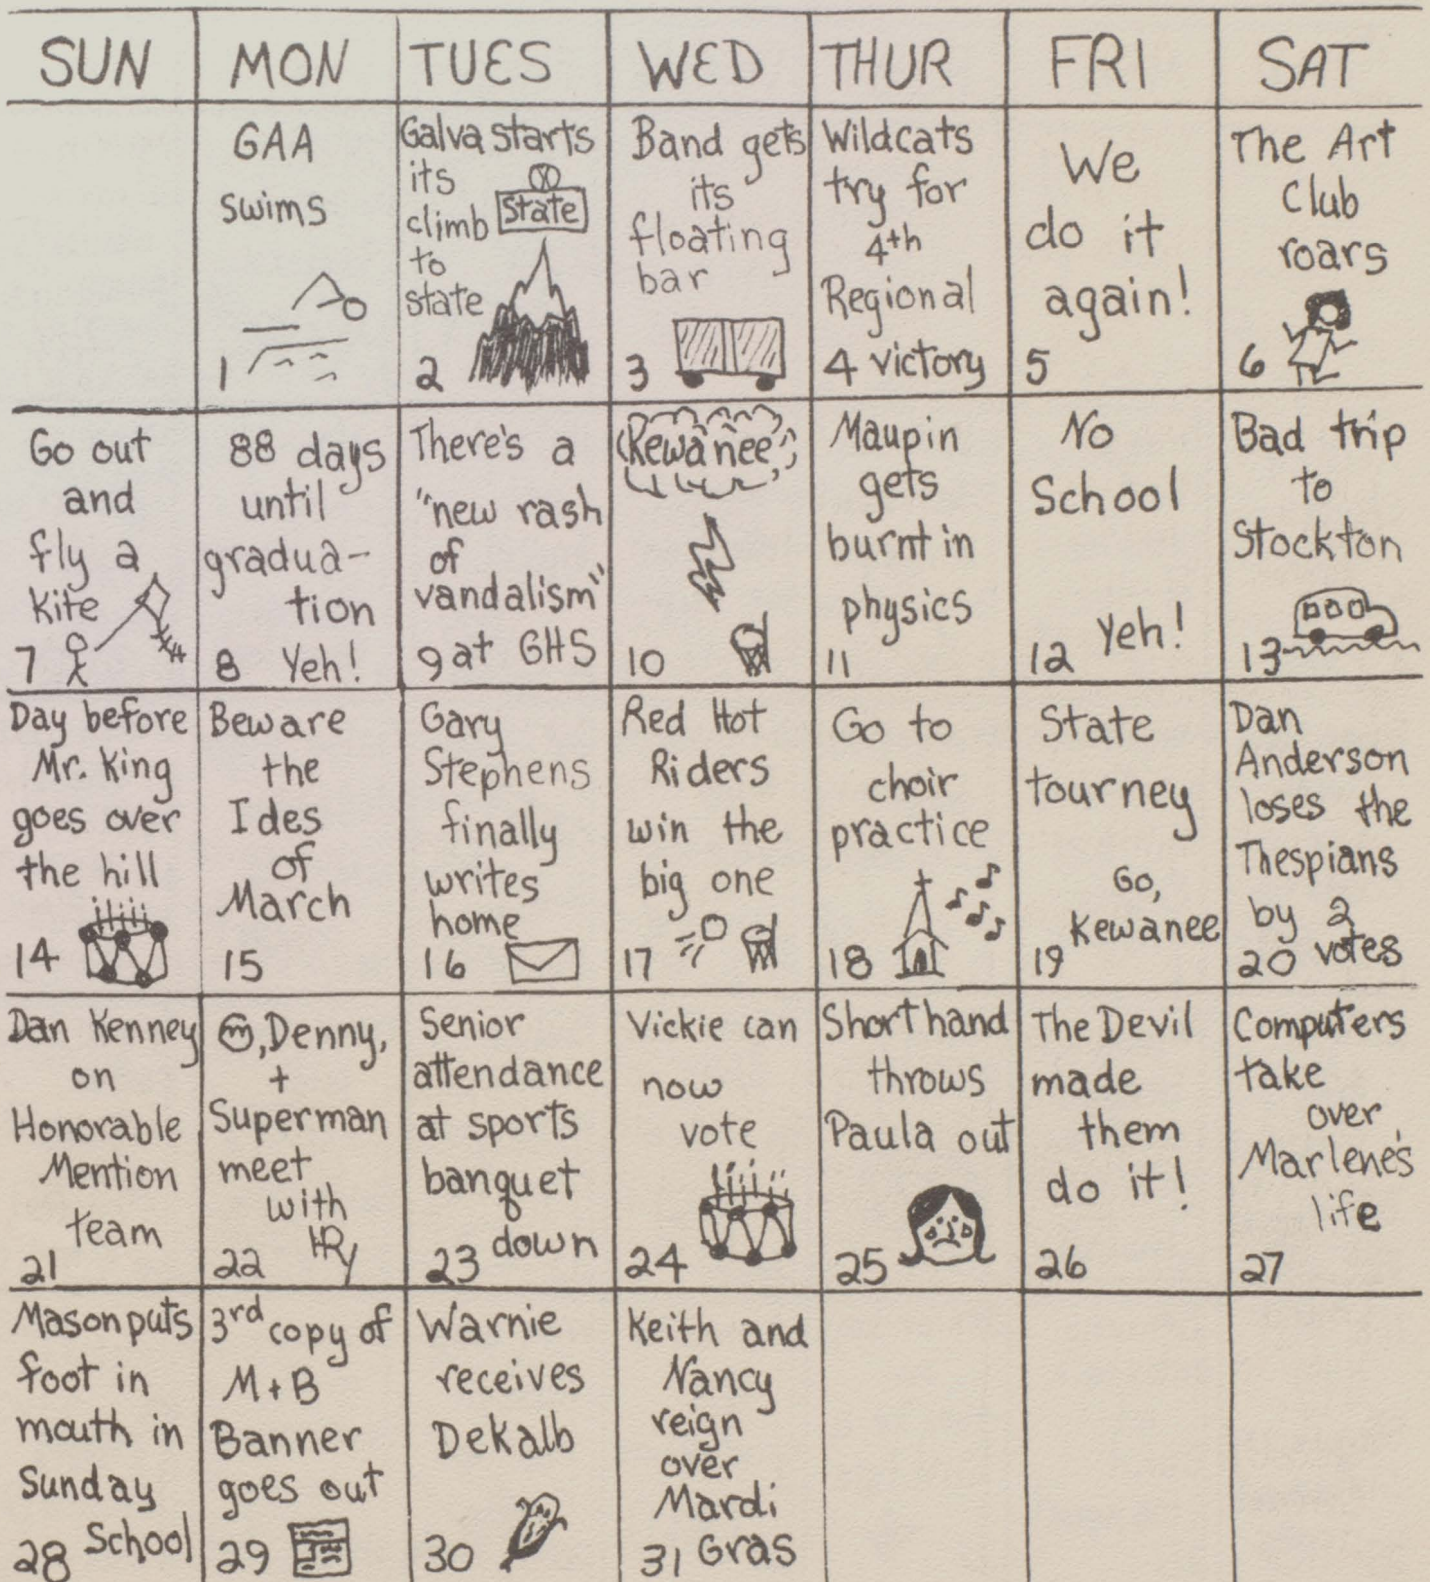 SUN MON TUES WED THUR FRI SAT
GAA
swims
1
Galva starts
its
climb
to
state
State
2
Band gets
its
floating
bar
3
Wildcats
try for
4th
Regional
4 victory
We
do it
again!
5
The Art
Club
roars
6
Go out
and
fly a
kite
7
88 days
until
gradua-
tion
8 Yeh!
There's a
"new rash
of
vandalism"
9 at GHS
Kewanee
10
Maupin
gets
burnt in
physics
11
No
School
12 Yeh!
Bad trip
to
Stockton
13
Day before
Mr. King
goes over
the hill
14
Beware
the
Ides
of
March
15
Gary
Stephens
finally
writes
home
16
Red Hot
Riders
win the
big one
17
Go to
choir
practice
18
State
tourney
Go,
Kewanee
19
Dan
Anderson
loses the
Thespians
by 2
20 votes
Dan Kenney
on
Honorable
Mention
team
21
, Denny,
+
Superman
meet
with
22
Senior
attendance
at sports
banquet
23 down
Vickie can
now
vote
24
Shorthand
throws
Paula out
25
The Devil
made
them
do it!
26
Computers
take
over
Marlene's
life
27
Mason puts
foot in
mouth in
Sunday
28 School
3rd copy of
M+B
Banner
goes out
29
Warnie
receives
DeKalb
30
Keith and
Nancy
reign
over
Mardi
31 Gras